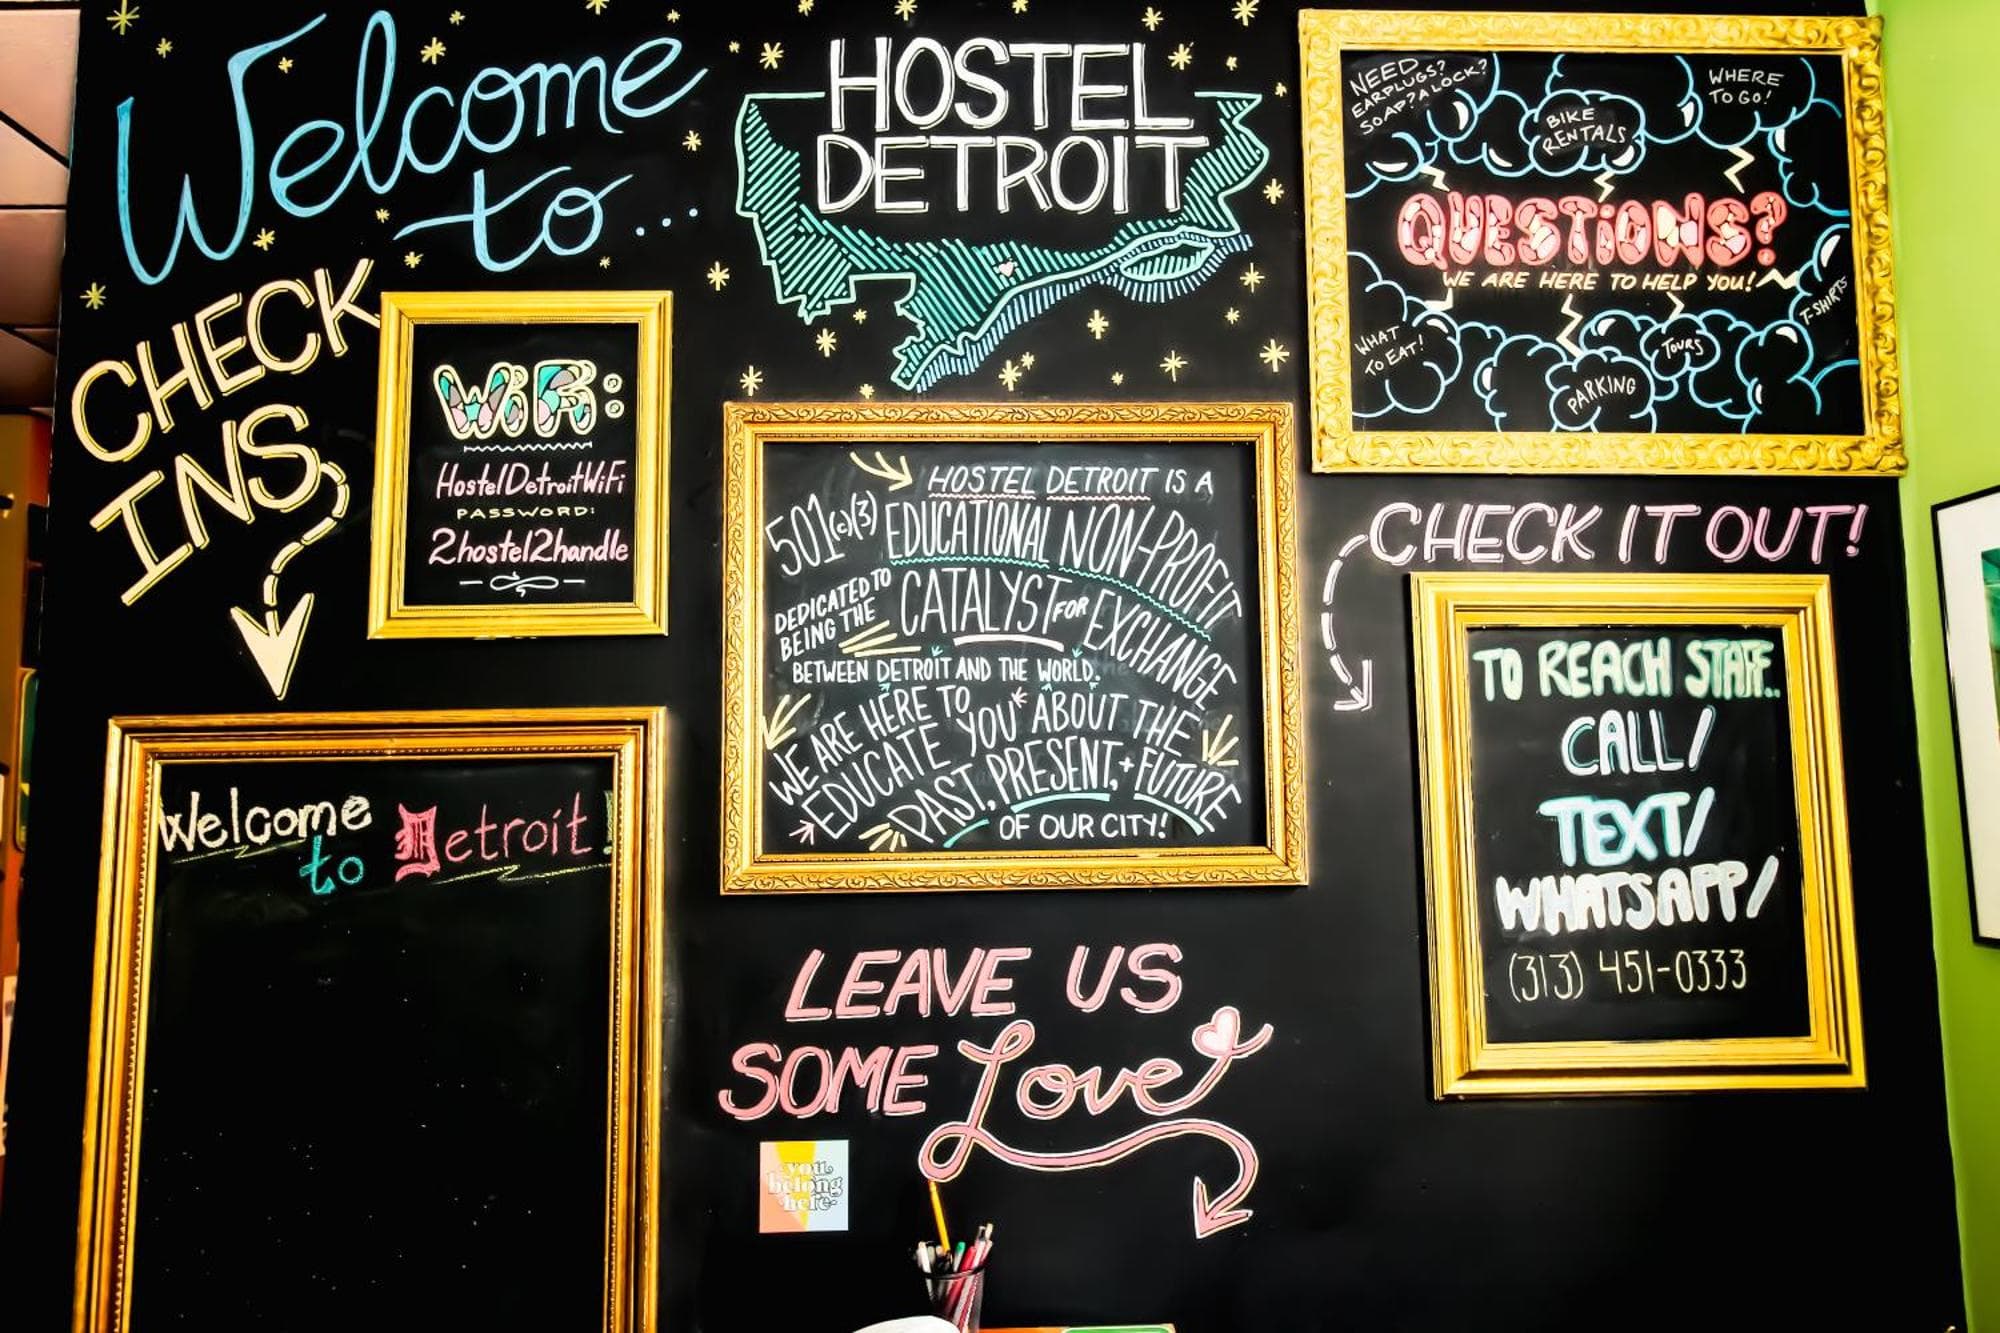 Welcome
to...
HOSTEL
DETROIT
NEED
EARPLUGS?
SOAP? A LOCK?
BIKE
RENTALS
WHERE
TO GO!
QUESTiONS?
WE ARE HERE TO HELP YOU!
T-SHIRTS
WHAT
TO EAT!
TOURS
PARKING
CHECK
INS
WiFi:
HostelDetroitWiFi
PASSWORD:
2hostel2handle
HOSTEL DETROIT IS A
501(c)(3) EDUCATIONAL NON-PROFIT
DEDICATED TO
BEING THE CATALYST FOR EXCHANGE
BETWEEN DETROIT AND THE WORLD.
WE ARE HERE TO
EDUCATE YOU* ABOUT THE
PAST, PRESENT, + FUTURE
OF OUR CITY!
CHECK IT OUT!
TO REACH STAFF..
CALL/
TEXT/
WHATSAPP/
(313) 451-0333
Welcome
to Detroit!
LEAVE US
SOME Love
you
belong
here